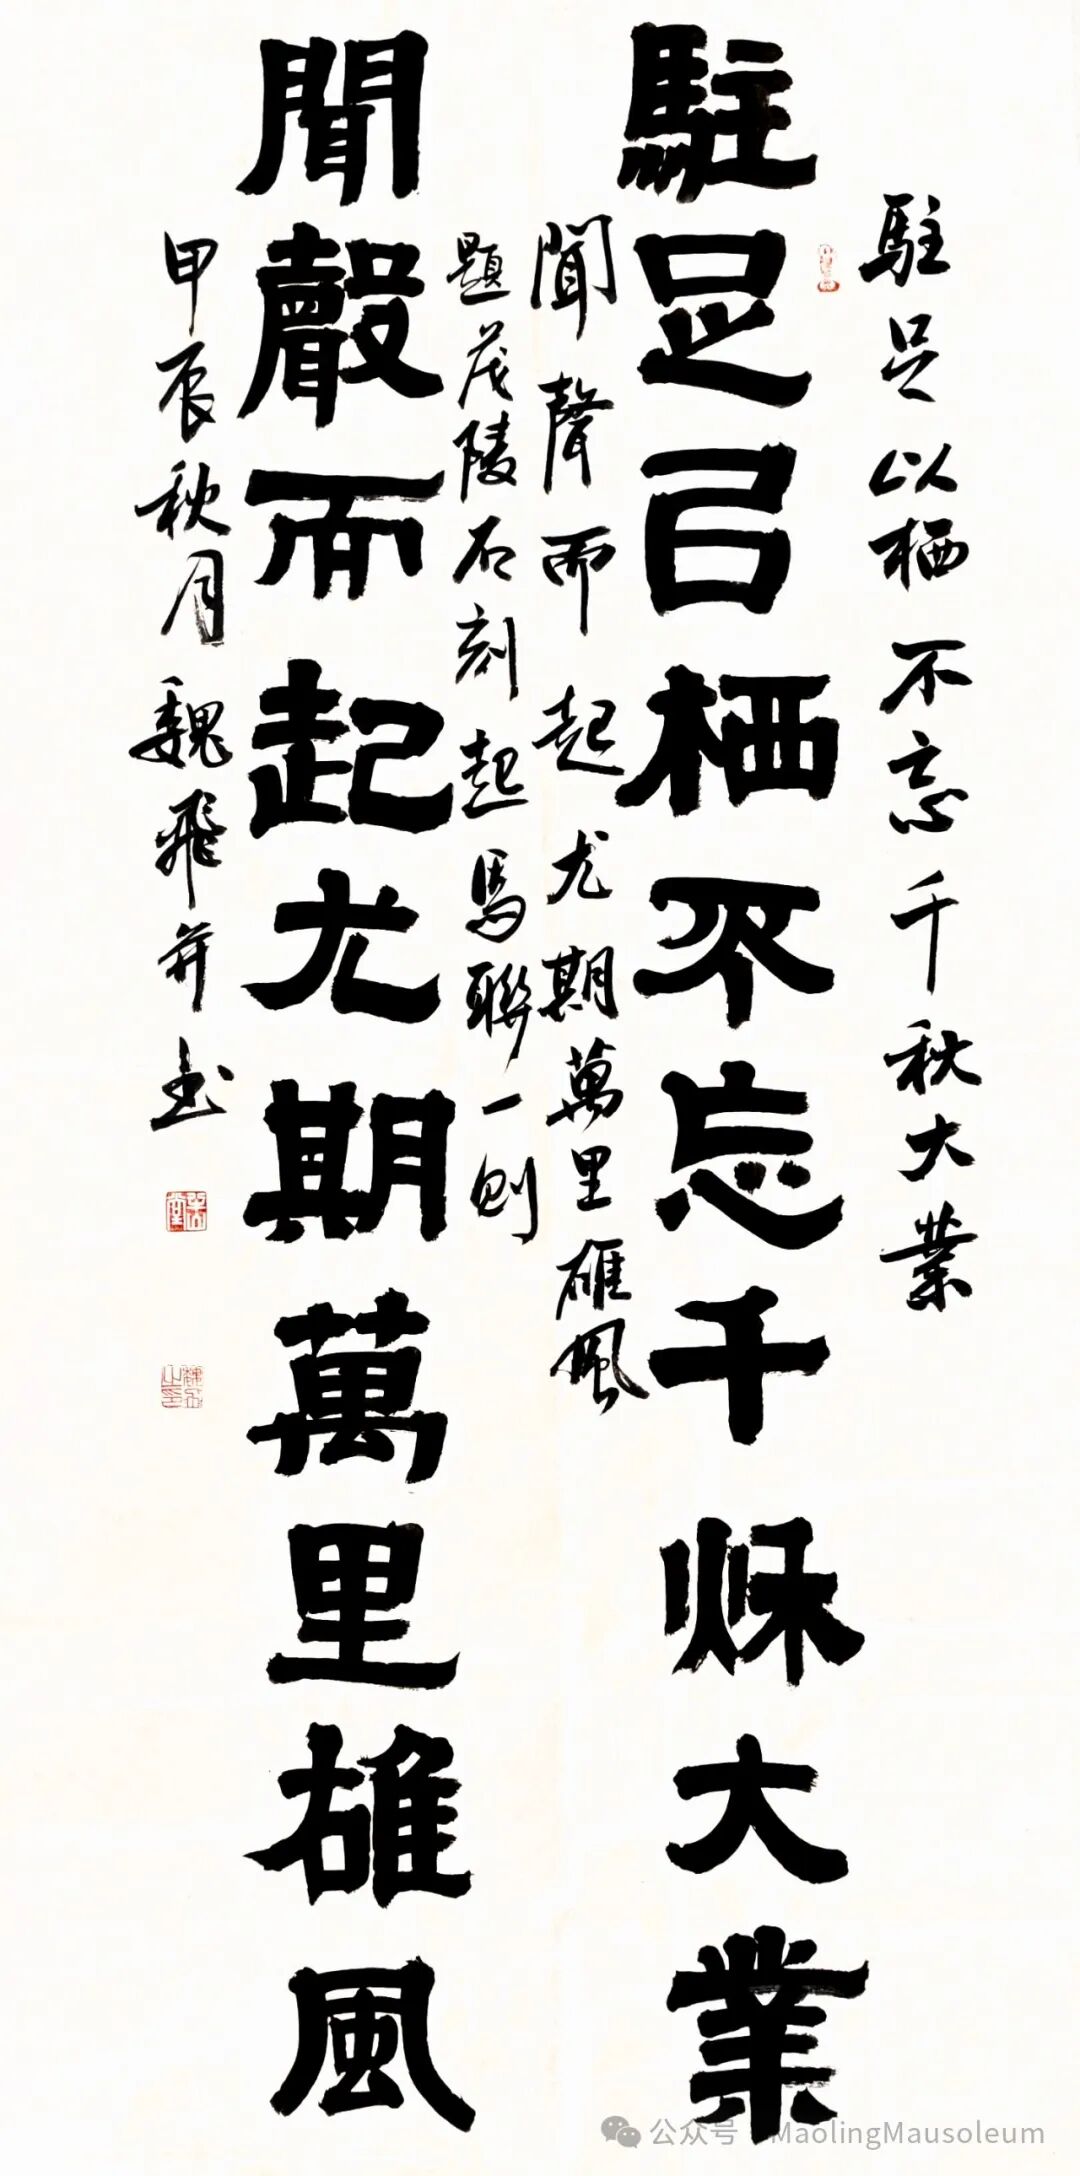 駐足以栖不忘千秋大業
駐足㠯栖不忘千秌大業
聞聲而起尤期萬里雄風
題茂陵石刻起馬聯一則
聞聲而起尤期萬里雄風
甲辰秋月魏飛并书
公众号 · MaolingMausoleum